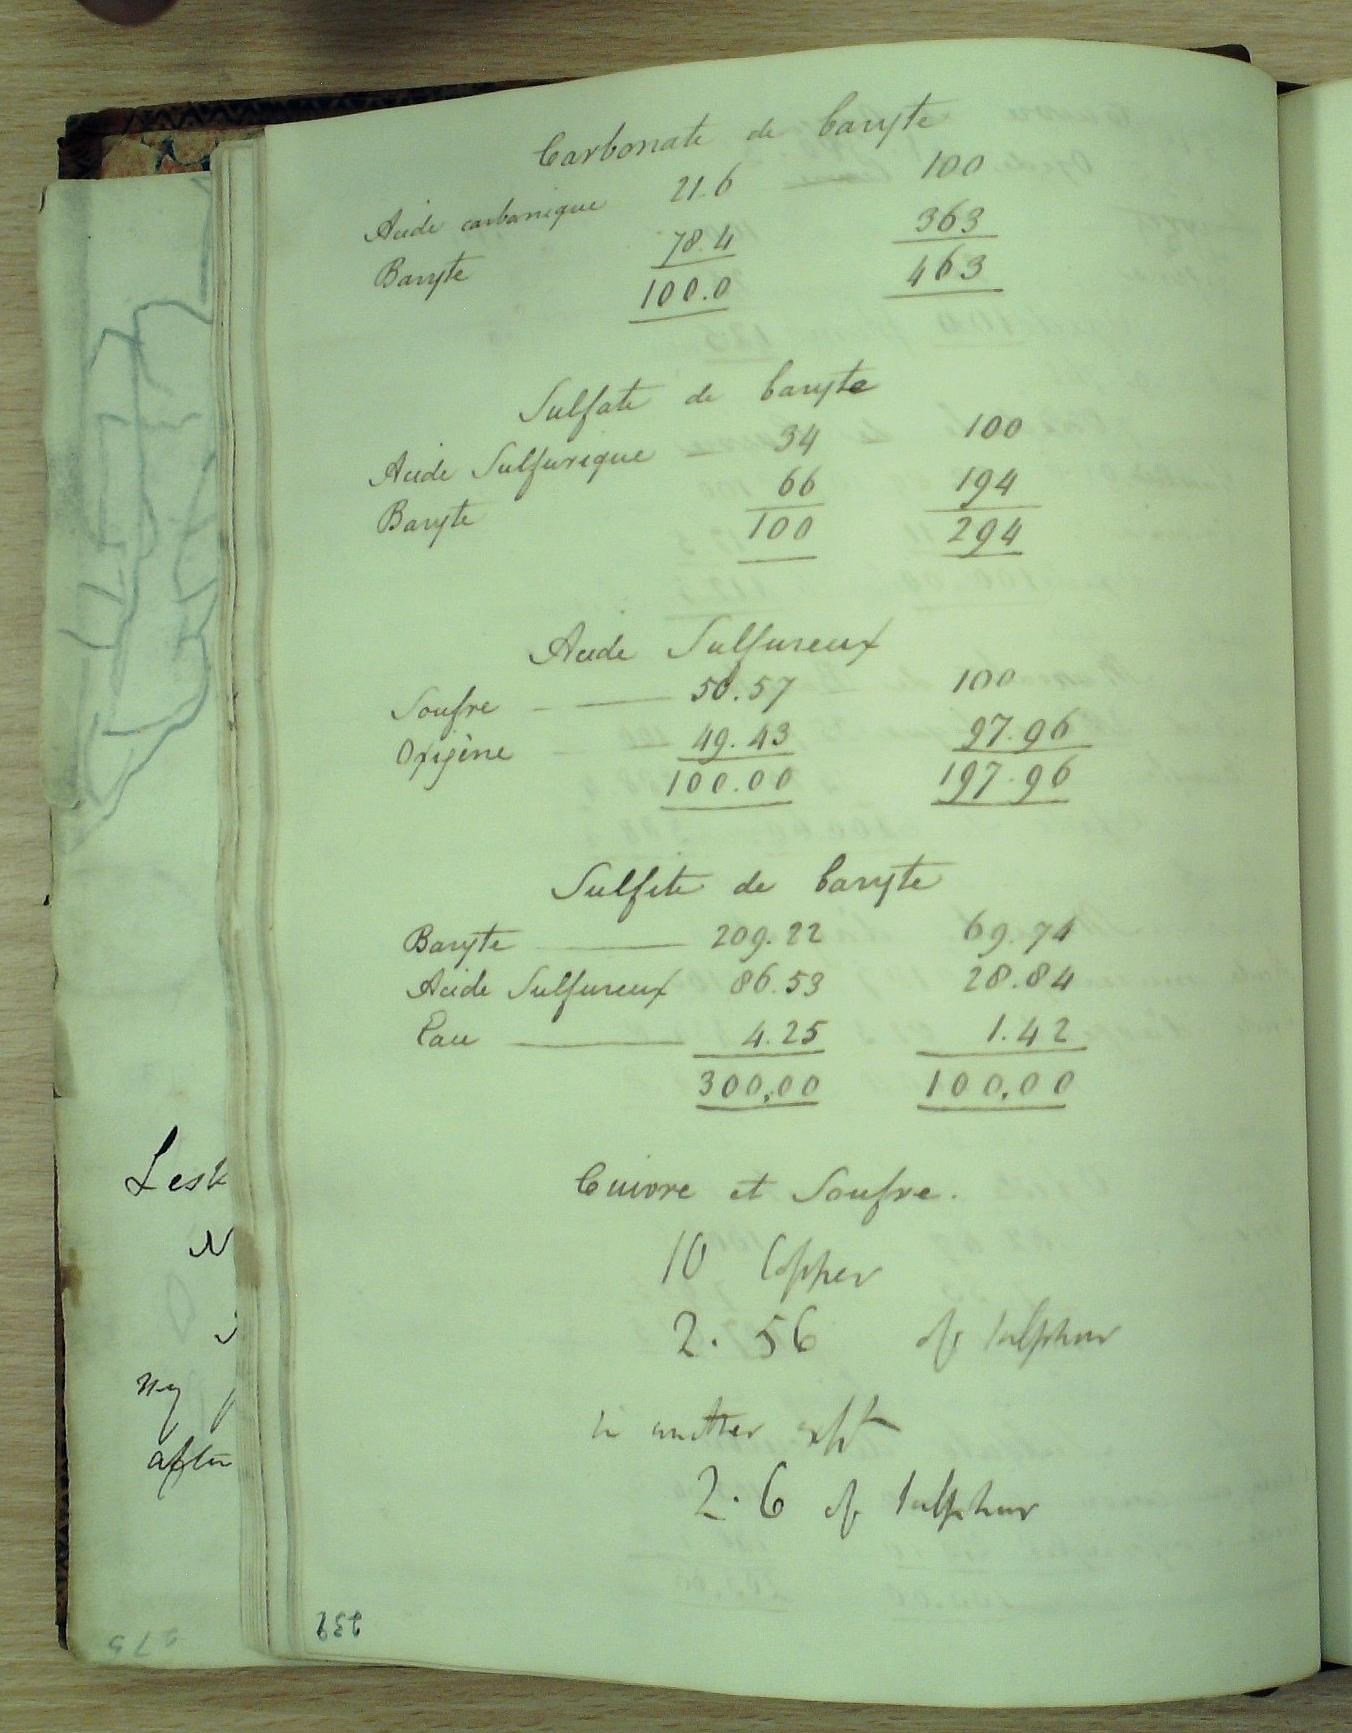 Carbonate de baryte
Acide carbonique 21.6 100
Baryte 78.4 363
100.0 463
Sulfate de baryte
Acide Sulfurique 34 100
Baryte 66 194
100 294
Acide Sulfureux
Soufre 50.57 100
Oxigène 49.43 97.96
100.00 197.96
Sulfite de baryte
Baryte 209.22 69.74
Acide Sulfureux 86.53 28.84
Eau 4.25 1.42
300,00 100,00
Cuivre et Soufre.
10 Copper
2.56 of sulphur
in another expt
2.6 of sulphur
239
Lesk
N
my
after
275